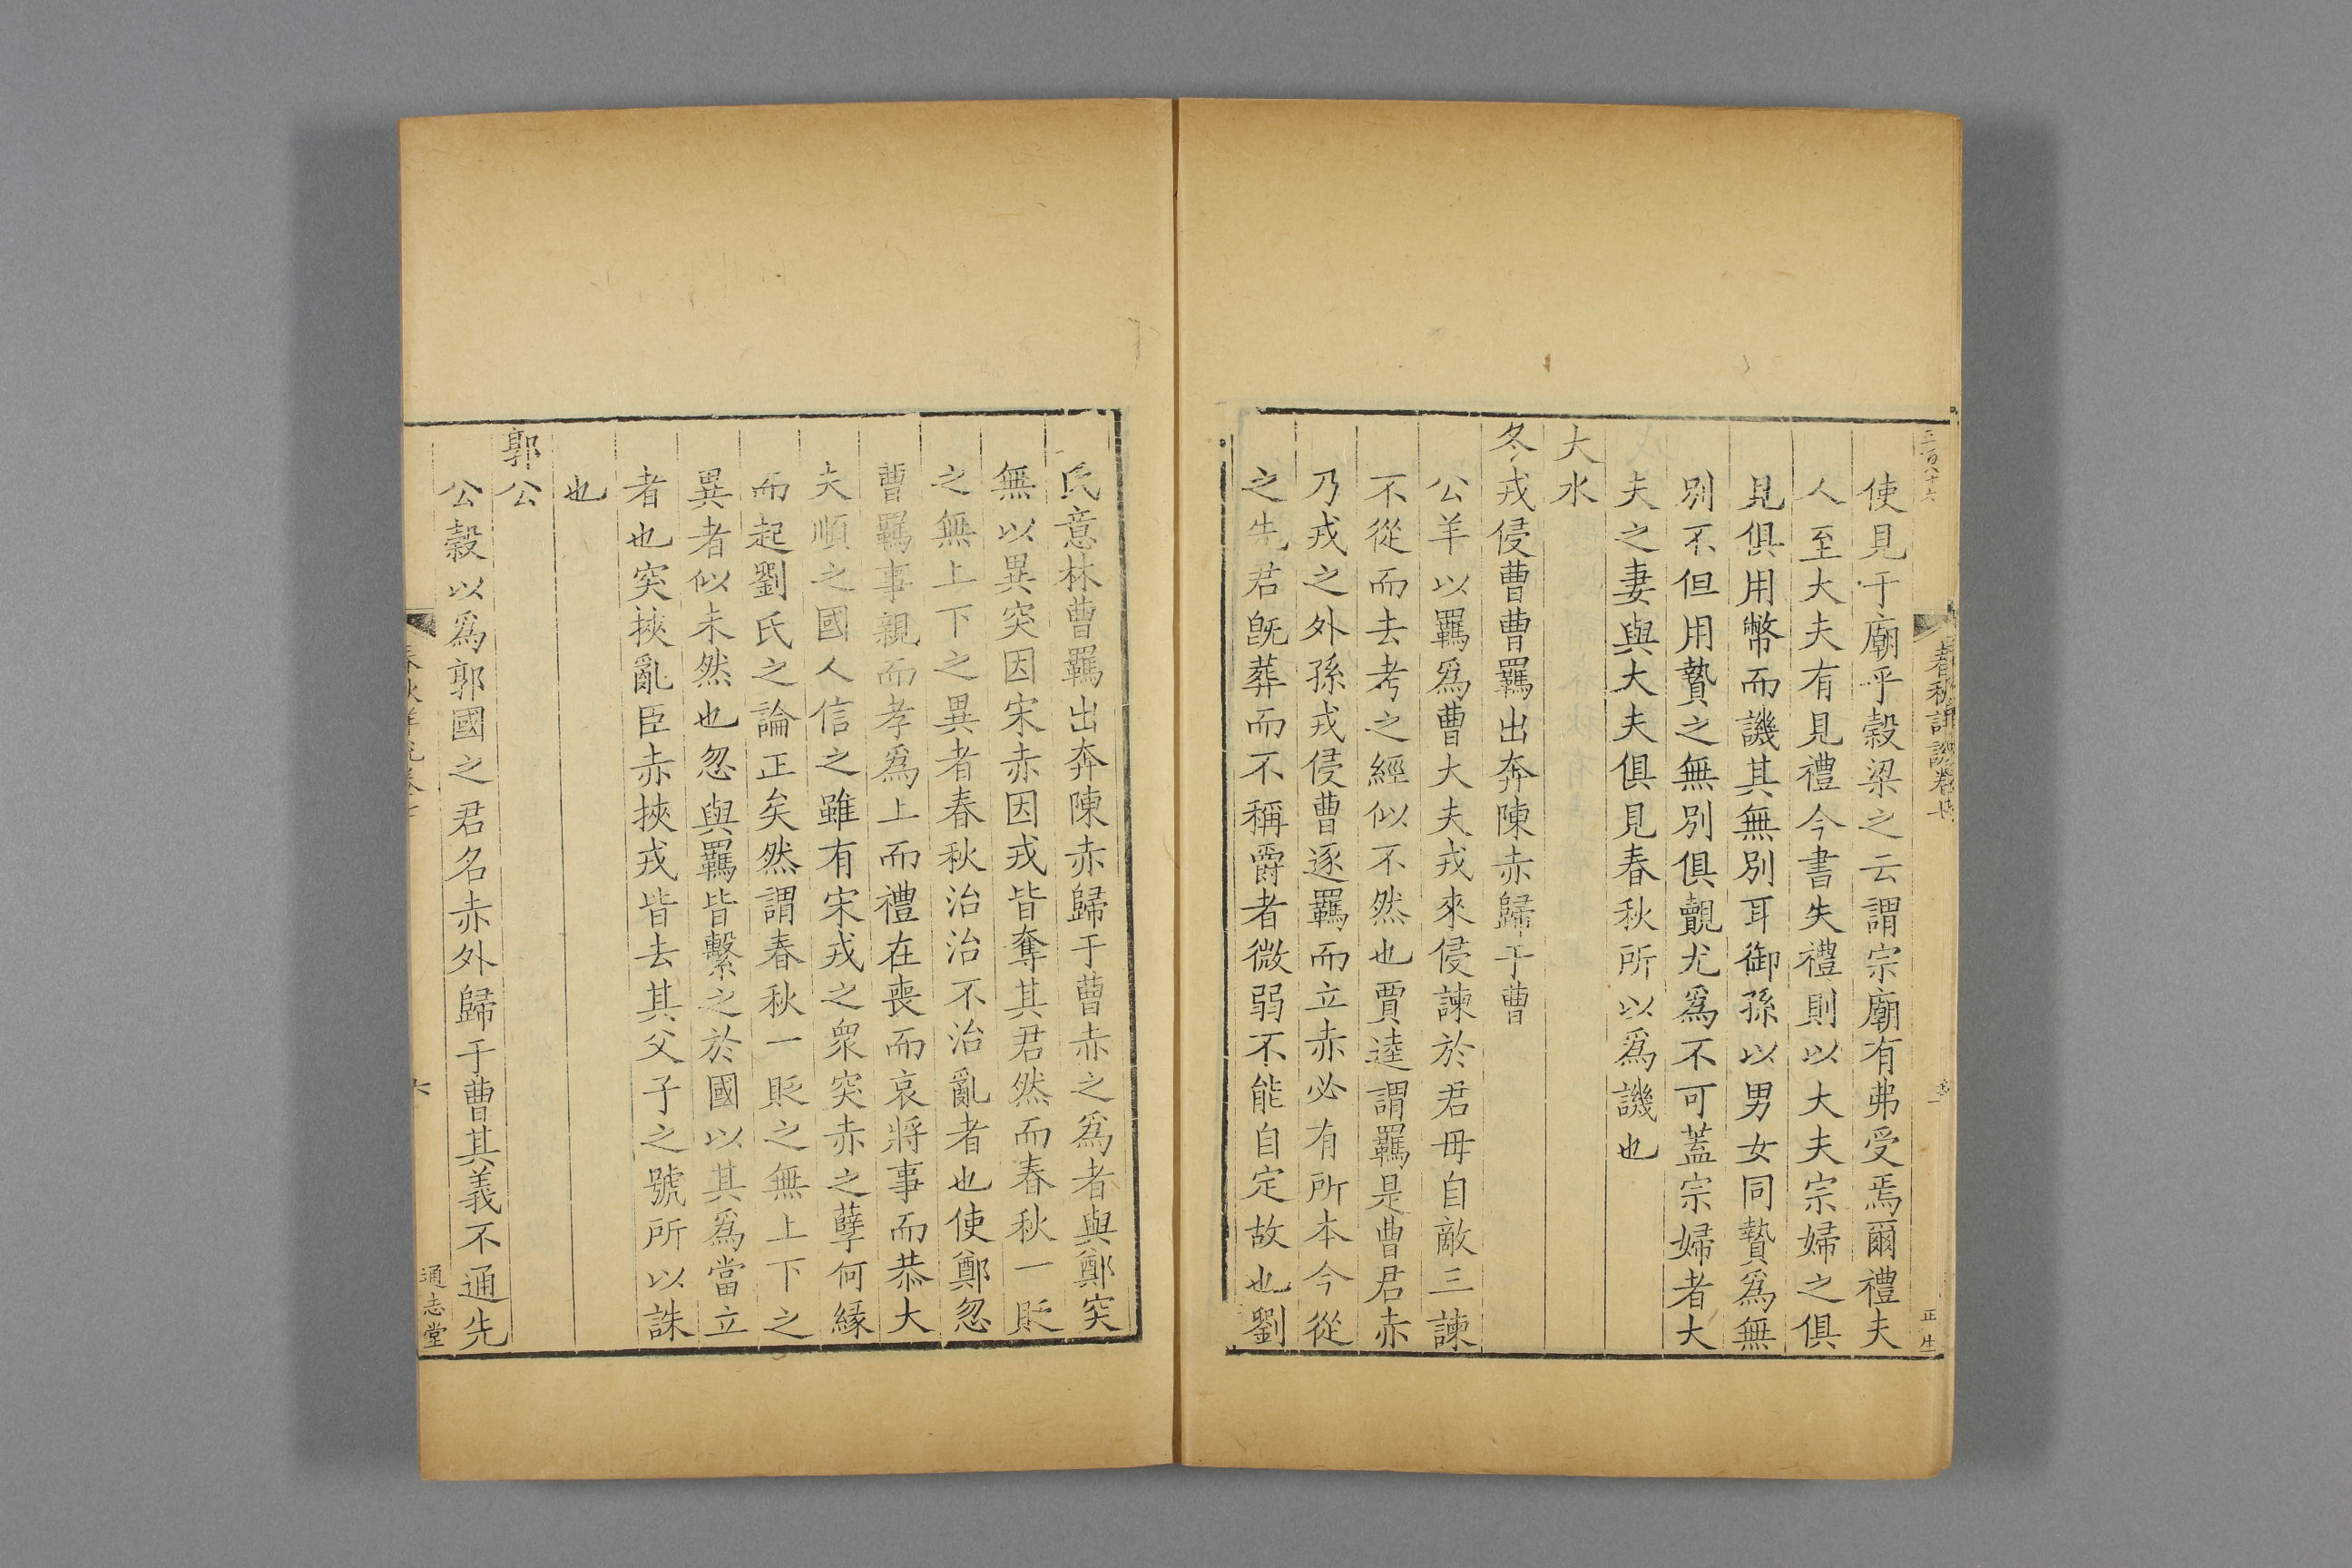 使見于廟乎穀梁之云謂宗廟有弗受焉爾禮夫
人至大夫有見禮今書失禮則以大夫宗婦之俱
見俱用幣而譏其無別耳御孫以男女同贄爲無
別不但用贄之無別俱覿尤爲不可蓋宗婦者大
夫之妻與大夫俱見春秋所以爲譏也
大水
冬戎侵曹曹羈出奔陳赤歸于曹
公羊以羈爲曹大夫戎來侵諫於君毋自敵三諫
不從而去考之經似不然也賈逵謂羈是曹君赤
乃戎之外孫戎侵曹逐羈而立赤必有所本今從
之先君旣葬而不稱爵者微弱不能自定故也劉
氏意林曹羈出奔陳赤歸于曹赤之爲者與鄭突
無以異突因宋赤因戎皆奪其君然而春秋一貶
之無上下之異者春秋治治不治亂者也使鄭忽
曹羈事親而孝爲上而禮在喪而哀將事而恭大
夫順之國人信之雖有宋戎之衆突赤之孽何緣
而起劉氏之論正矣然謂春秋一貶之無上下之
異者似未然也忽與羈皆繫之於國以其爲當立
者也突挾亂臣赤挾戎皆去其父子之號所以誅
也
郭公
公穀以爲郭國之君名赤外歸于曹其義不通先
六
通志堂